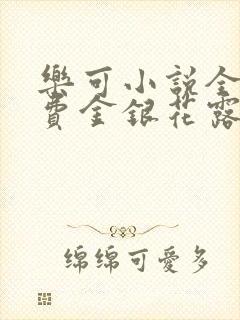 樂可小説全
費金銀花露
绵绵可愛多